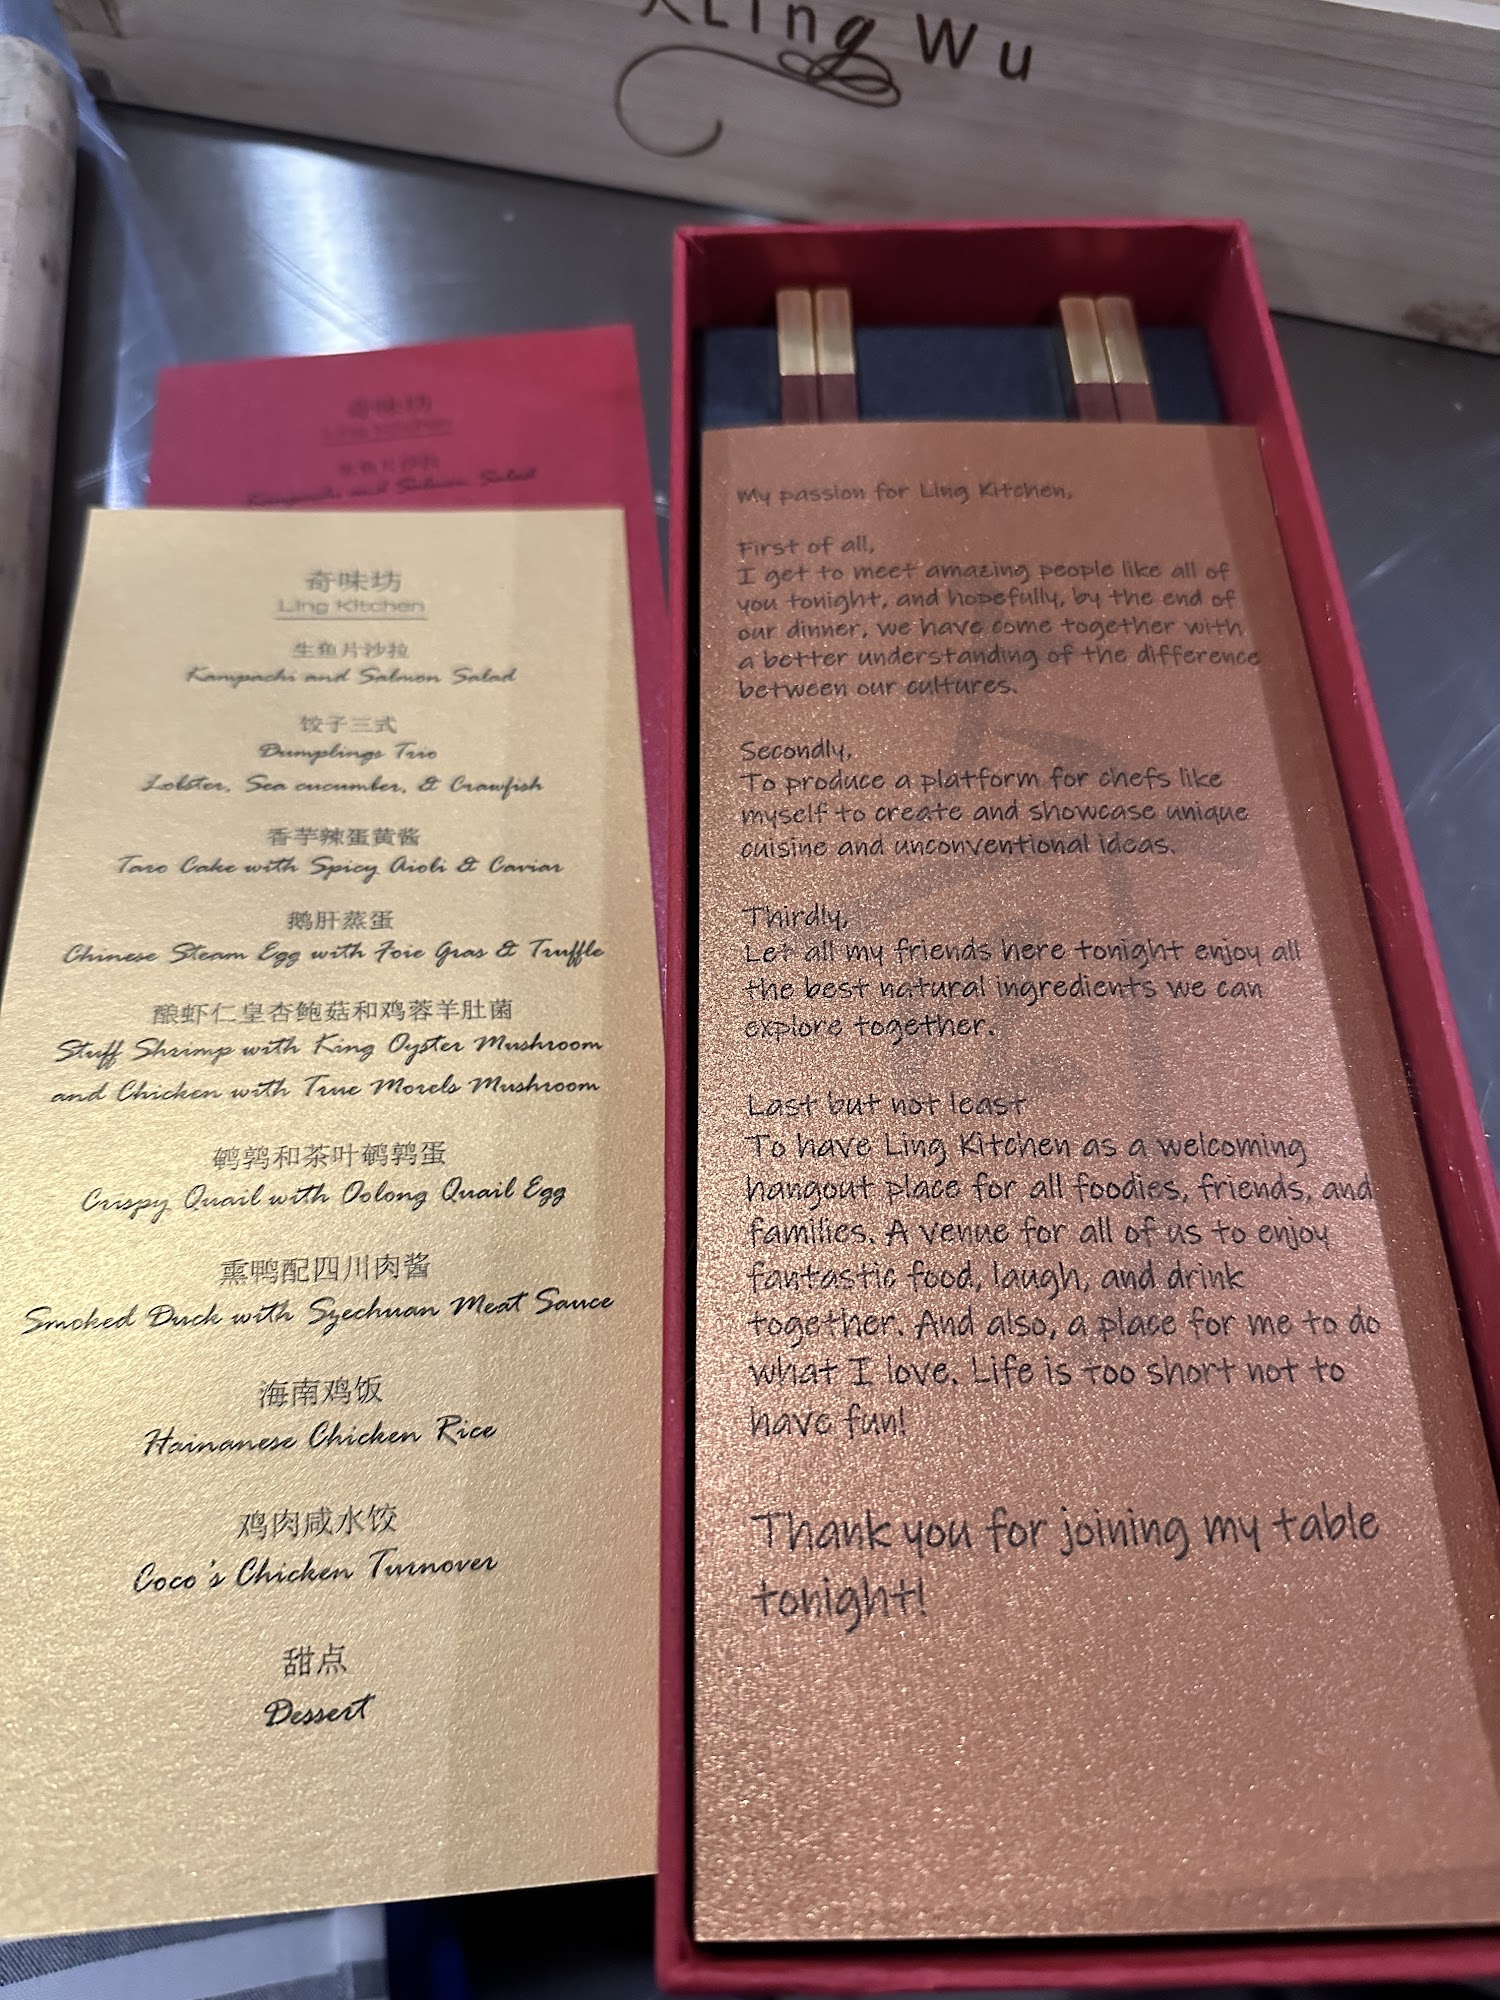 Ling Wu
奇味坊
Ling Kitchen
生鱼片沙拉
Kampachi and Salmon Salad
奇味坊
Ling Kitchen
生鱼片沙拉
Kampachi and Salmon Salad
饺子三式
Dumplings Trio
Lobster, Sea cucumber, & Crawfish
香芋辣蛋黄酱
Taro Cake with Spicy Aioli & Caviar
鹅肝蒸蛋
Chinese Steam Egg with Foie Gras & Truffle
酿虾仁皇杏鲍菇和鸡蓉羊肚菌
Stuff Shrimp with King Oyster Mushroom
and Chicken with True Morels Mushroom
鹌鹑和茶叶鹌鹑蛋
Crispy Quail with Oolong Quail Egg
熏鸭配四川肉酱
Smoked Duck with Szechuan Meat Sauce
海南鸡饭
Hainanese Chicken Rice
鸡肉咸水饺
Coco's Chicken Turnover
甜点
Dessert
My passion for Ling Kitchen,
First of all,
I get to meet amazing people like all of
you tonight, and hopefully, by the end of
our dinner, we have come together with
a better understanding of the difference
between our cultures.
Secondly,
To produce a platform for chefs like
myself to create and showcase unique
cuisine and unconventional ideas.
Thirdly,
Let all my friends here tonight enjoy all
the best natural ingredients we can
explore together.
Last but not least
To have Ling Kitchen as a welcoming
hangout place for all foodies, friends, and
families. A venue for all of us to enjoy
fantastic food, laugh, and drink
together. And also, a place for me to do
what I love. Life is too short not to
have fun!
Thank you for joining my table
tonight!